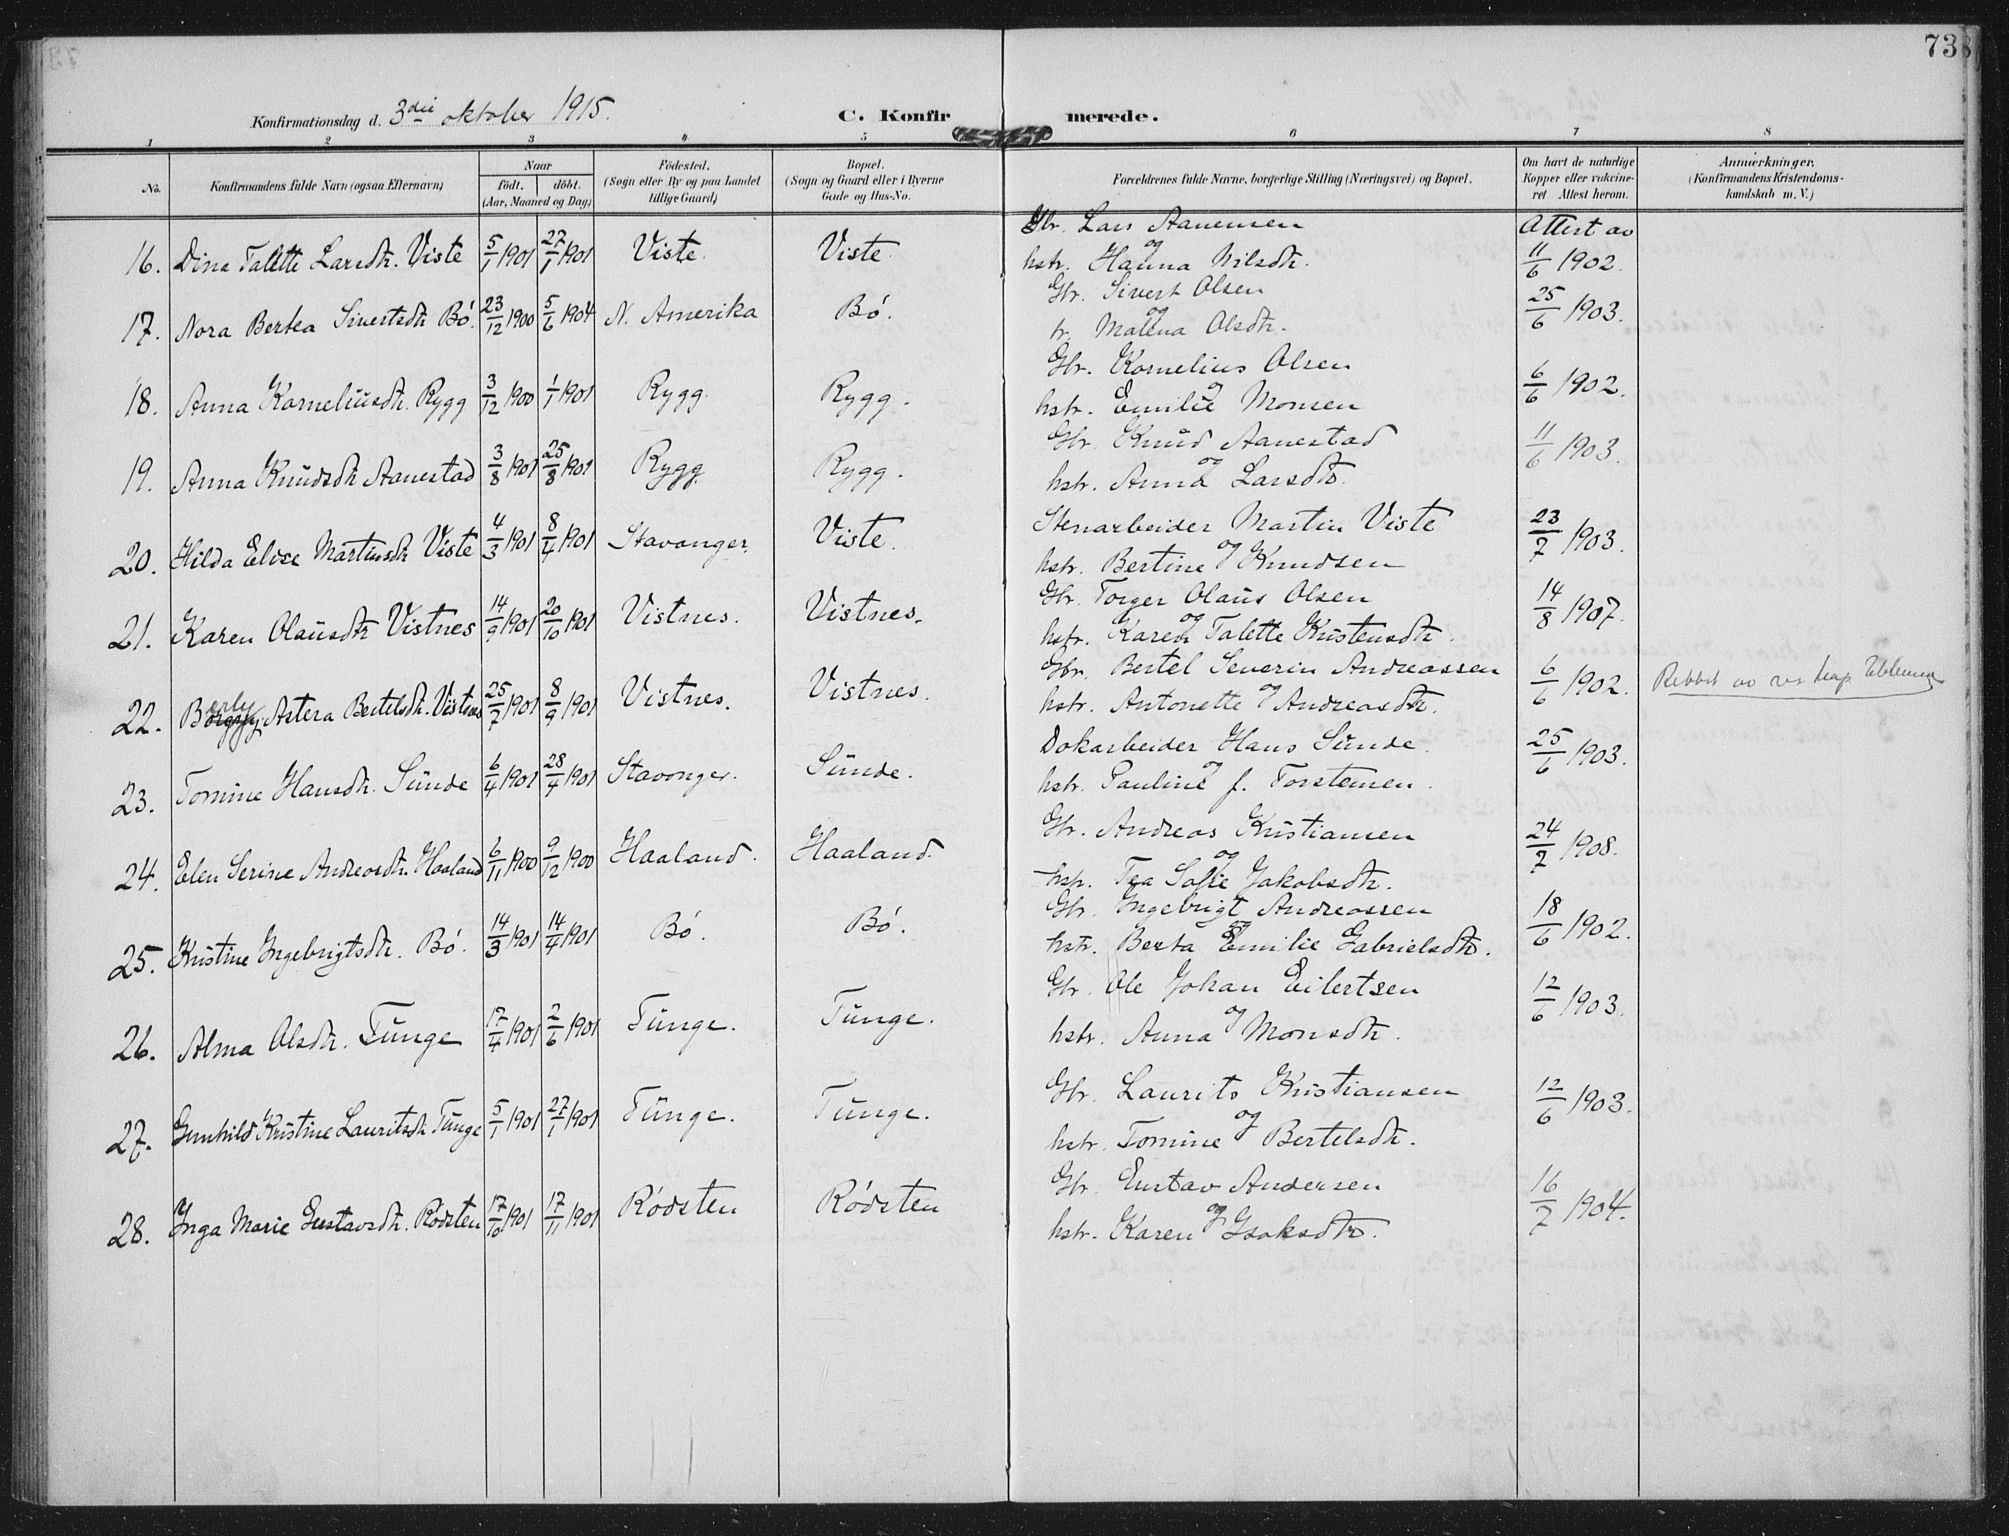 738
Konfirmationsdag d. 3die oktober 1915.
C. Konfirmerede.
1 2 3 4 5 6 7 8
No.
Konfirmandens fulde Navn (ogsaa Efternavn)
Naar
født. døbt.
(Aar, Maaned og Dag)
Födested.
(Sogn eller By og paa Landet
tillige Gaard)
Bopæl.
(Sogn og Gaard eller i Byerne
Gade og Hus-No.
Forældrenes fulde Navne, borgerlige Stilling (Næringsvei) og Bopæl.
Om havt de naturlige
Kopper eller vakcine-
ret Attest herom.
Anmærkninger.
(Konfirmandens Kristendoms-
kundskab m. V.)
Gbr. Lars Aanensen Attest av
16. Dina Talette Larsdtr. Viste 5/1 1901 27/1 1901 Viste. Viste. og 11/6 1902.
hstr. Hanna Nilsdtr.
Gbr. Sivert Olsen
17. Nora Bertea Sivertsdtr Bó. 23/12 1900 5/6 1904 N. Amerika Bó. og 25/6 1903.
Malena Olsdtr.
Gbr. Kornelius Olsen
18. Anna Korneliusdtr. Rygg 3/12 1900 1/1 1901 Rygg. Rygg. og 6/6 1902.
hstr. Emilie Monsen
Gbr. Knud Aanestad
19. Anna Knudsdtr Aanestad 3/8 1901 25/8 1901 Rygg. Rygg. og 11/6 1903.
hstr. Anna Larsdtr.
Stenarbeider Martin Viste
20. Hilda Elise Martinsdtr Viste 4/3 1901 8/4 1901 Stavanger. Viste. og 23/7 1903.
hstr. Bertine Knudsen
Gbr. Torger Olaus Olsen
21. Karen Olausdtr Vistnes 14/9 1901 20/10 1901 Vistnes. Vistnes. og 14/8 1907.
hstr. Karen Talette Kristensdtr.
Gbr. Bertel Severin Andreassen
22. Astera Bertelsdtr. Vistnes 25/7 1901 8/9 1901 Vistnes. Vistnes. og 6/6 1902. Rettet av
hstr. Antonette Andreasdtr.
Dokarbeider Hans Sunde.
23. Tomine Hansdtr. Sunde 6/4 1901 28/4 1901 Stavanger. Sunde. og 25/6 1903.
hstr. Pauline f. Torstensen.
Gbr. Andreas Kristiansen
24. Elen Serine Andreasdtr. Haaland 6/11 1900 9/12 1900 Haaland. Haaland. og 24/7 1908.
hstr. Tea Sofie Jakobsdtr.
Gbr. Ingebrigt Andreassen
25. Kristine Ingebrigtsdtr. Bó. 14/3 1901 14/4 1901 Bó. Bó. og 18/6 1902.
hstr. Berta Emilie Gabrielsdtr.
Gbr. Ole Johan Eilertsen
26. Alma Olsdtr. Tunge 17/4 1901 2/6 1901 Tunge. Tunge. og 12/6 1903.
hstr. Anna Monsdtr.
Gbr. Laurits Kristiansen
27. Gunhild Kristine Lauritsdtr Tunge 5/1 1901 27/1 1901 Tunge. Tunge. og 12/6 1903.
hstr. Tomine Bertelsdtr.
Gbr. Gustav Andersen
28. Inga Marie Gustavsdtr. Rodsten 17/10 1901 17/11 1901 Ródsten Ródsten og 16/7 1904.
hstr. Karen Isaksdtr.